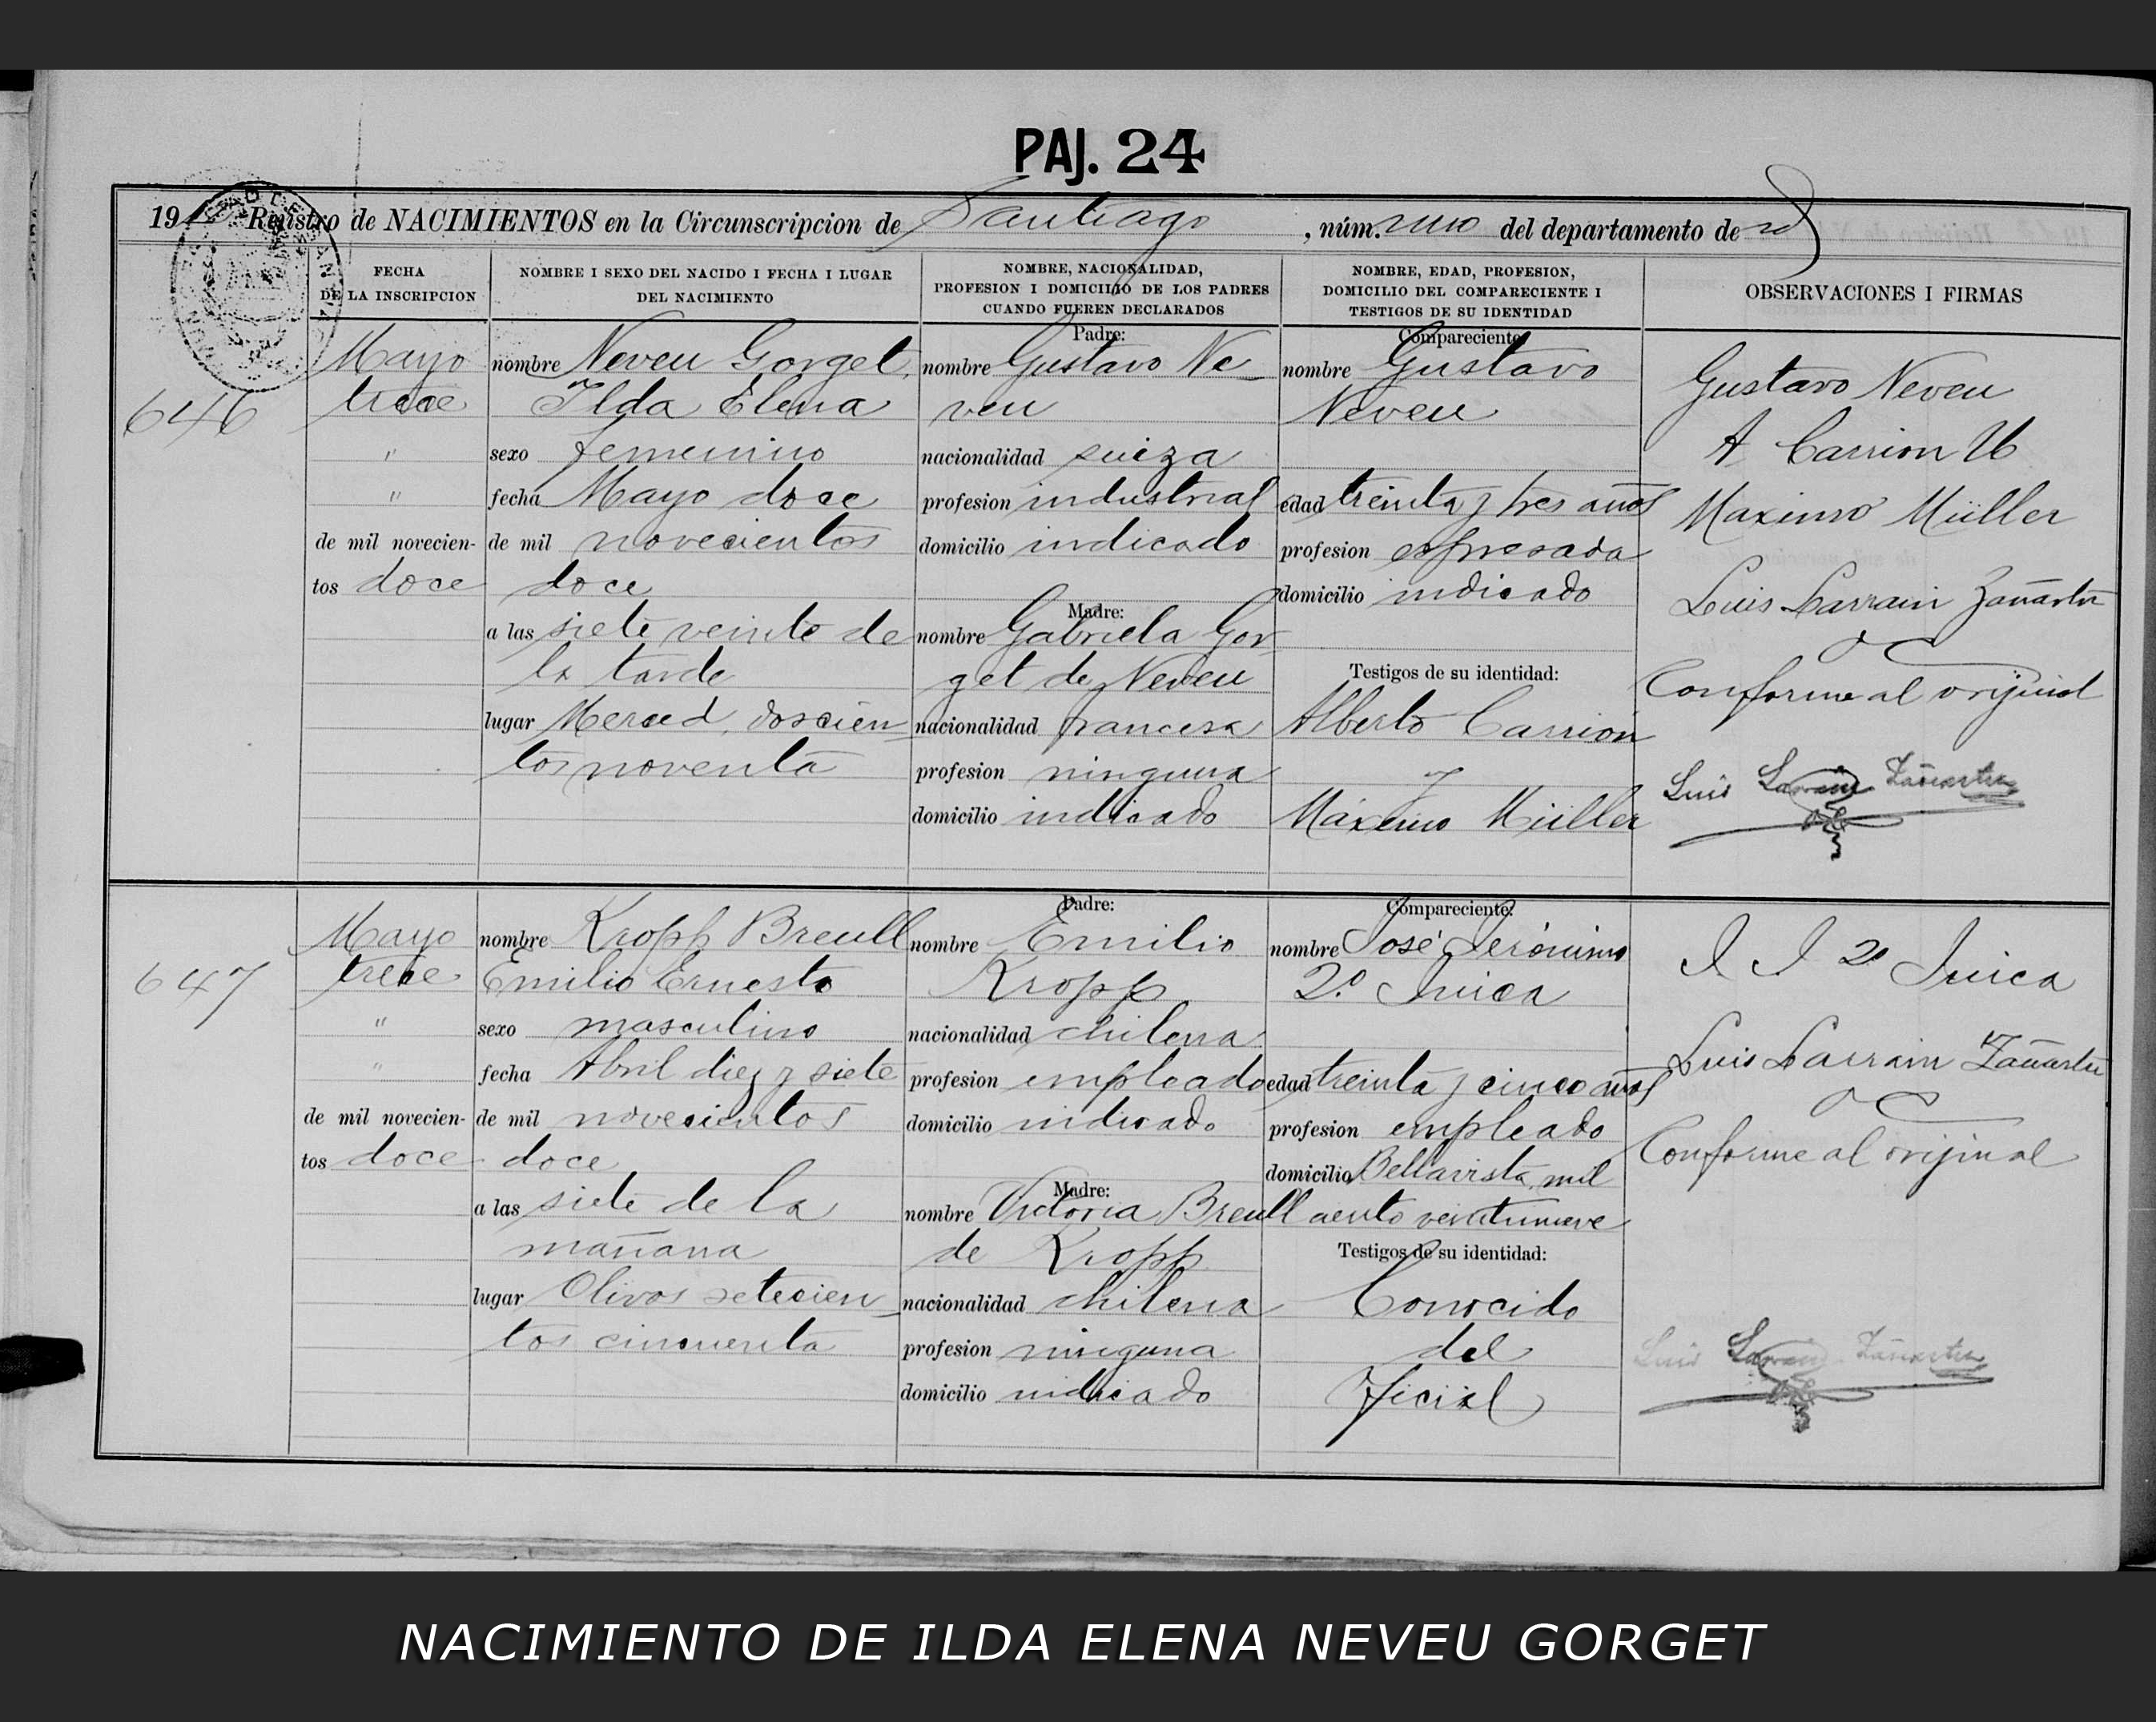 PAJ. 24
191 Rejistro de NACIMIENTOS en la Circunscripcion de Santiago, núm. uno del departamento de id
FECHA
DE LA INSCRIPCION
NOMBRE I SEXO DEL NACIDO I FECHA I LUGAR
DEL NACIMIENTO
NOMBRE, NACIONALIDAD,
PROFESION I DOMICILIO DE LOS PADRES
CUANDO FUEREN DECLARADOS
NOMBRE, EDAD, PROFESION,
DOMICILIO DEL COMPARECIENTE I
TESTIGOS DE SU IDENTIDAD
OBSERVACIONES I FIRMAS
646
Mayo
trece
"
"
de mil novecien-
tos doce
nombre Neveu Gorget,
Ilda Elena
sexo femenino
fecha Mayo doce
de mil novecientos
doce
a las siete veinte de
la tarde
lugar Merced, doscien
tos noventa
Padre:
nombre Gustavo Ne-
veu
nacionalidad suiza
profesion industrial
domicilio indicado
Madre:
nombre Gabriela Gor-
get de Neveu
nacionalidad francesa
profesion ninguna
domicilio indicado
Compareciente:
nombre Gustavo
Neveu
edad treinta y tres años
profesion espresada
domicilio indicado
Testigos de su identidad:
Alberto Carrion
y
Máximo Müller
Gustavo Neveu
A Carrion U
Maximo Müller
Luis Larrain Zañartu
Conforme al orijinal
Luis Larrain Zañartu
647
Mayo
trece
"
"
de mil novecien-
tos doce
nombre Kropp Breull
Emilio Ernesto
sexo masculino
fecha Abril diez y siete
de mil novecientos
doce
a las siete de la
mañana
lugar Olivos setecien-
tos cincuenta
Padre:
nombre Emilio
Kropp
nacionalidad chilena
profesion empleado
domicilio indicado
Madre:
nombre Victoria Breull
de Kropp
nacionalidad chilena
profesion ninguna
domicilio indicado
Compareciente:
nombre José Jerónimo
2.º
edad treinta y cinco años
profesion empleado
domicilio Bellavista, mil
ciento veintinueve
Testigos de su identidad:
Conocido
del
oficial
J J 2º
Luis Larrain Zañartu
Conforme al orijinal
Luis Larrain Zañartu
NACIMIENTO DE ILDA ELENA NEVEU GORGET